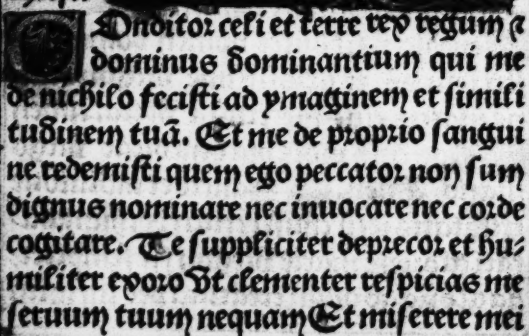 COnditor celi et terre rex regum ⁊
dominus dominantium qui me
de nichilo fecisti ad ymaginem et simili
tudinem tuā. Et me de proprio sangui
ne redemisti quem ego peccator non sum
dignus nominare nec inuocare nec corde
cogitare. Te suppliciter deprecor et hu-
militer exoro Ut clementer respicias me
seruum tuum nequam Et miserere mei